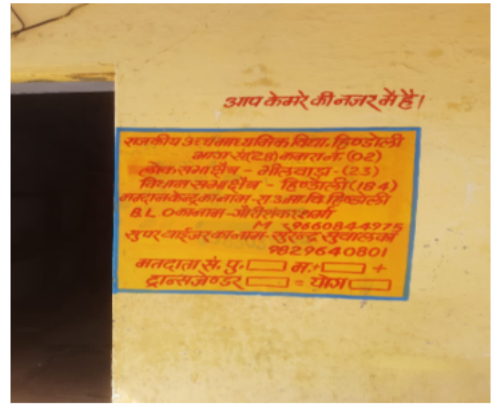 आप केमरे की नजर मैं है।
राजकीय उच्च माध्यमिक विद्या. हिण्डोली
भाग सं.(28) कमरा नं. (02)
लोक सभा क्षैत्र - भीलवाडा - (23)
विधान सभा क्षैत्र - हिण्डोली (184)
मतदान केन्द्र का नाम - रा उ मा. वि. हिण्डोली
B.L.O का नाम - गौरीशंकर शर्मा
M 9660844975
सुपरवाईजर का नाम - सुरेन्द्र सुवालका
9829640801
मतदाता सं. पु. म. + +
ट्रान्सजेण्डर = योग